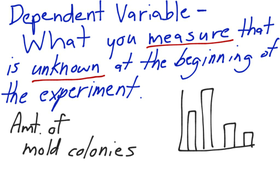 Dependent Variable -
What you measure that
is unknown at the beginning of
the experiment.
Amt. of
mold colonies